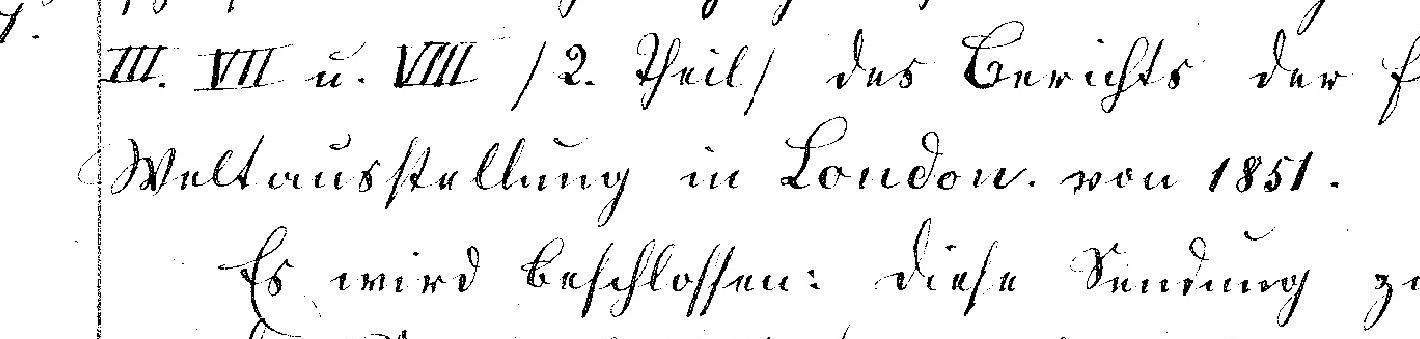 III. VII u. VIII /2. Theil/ des Berichts der
Weltausstellung in London. von 1851.
Es wird beschlossen: diese Sendung